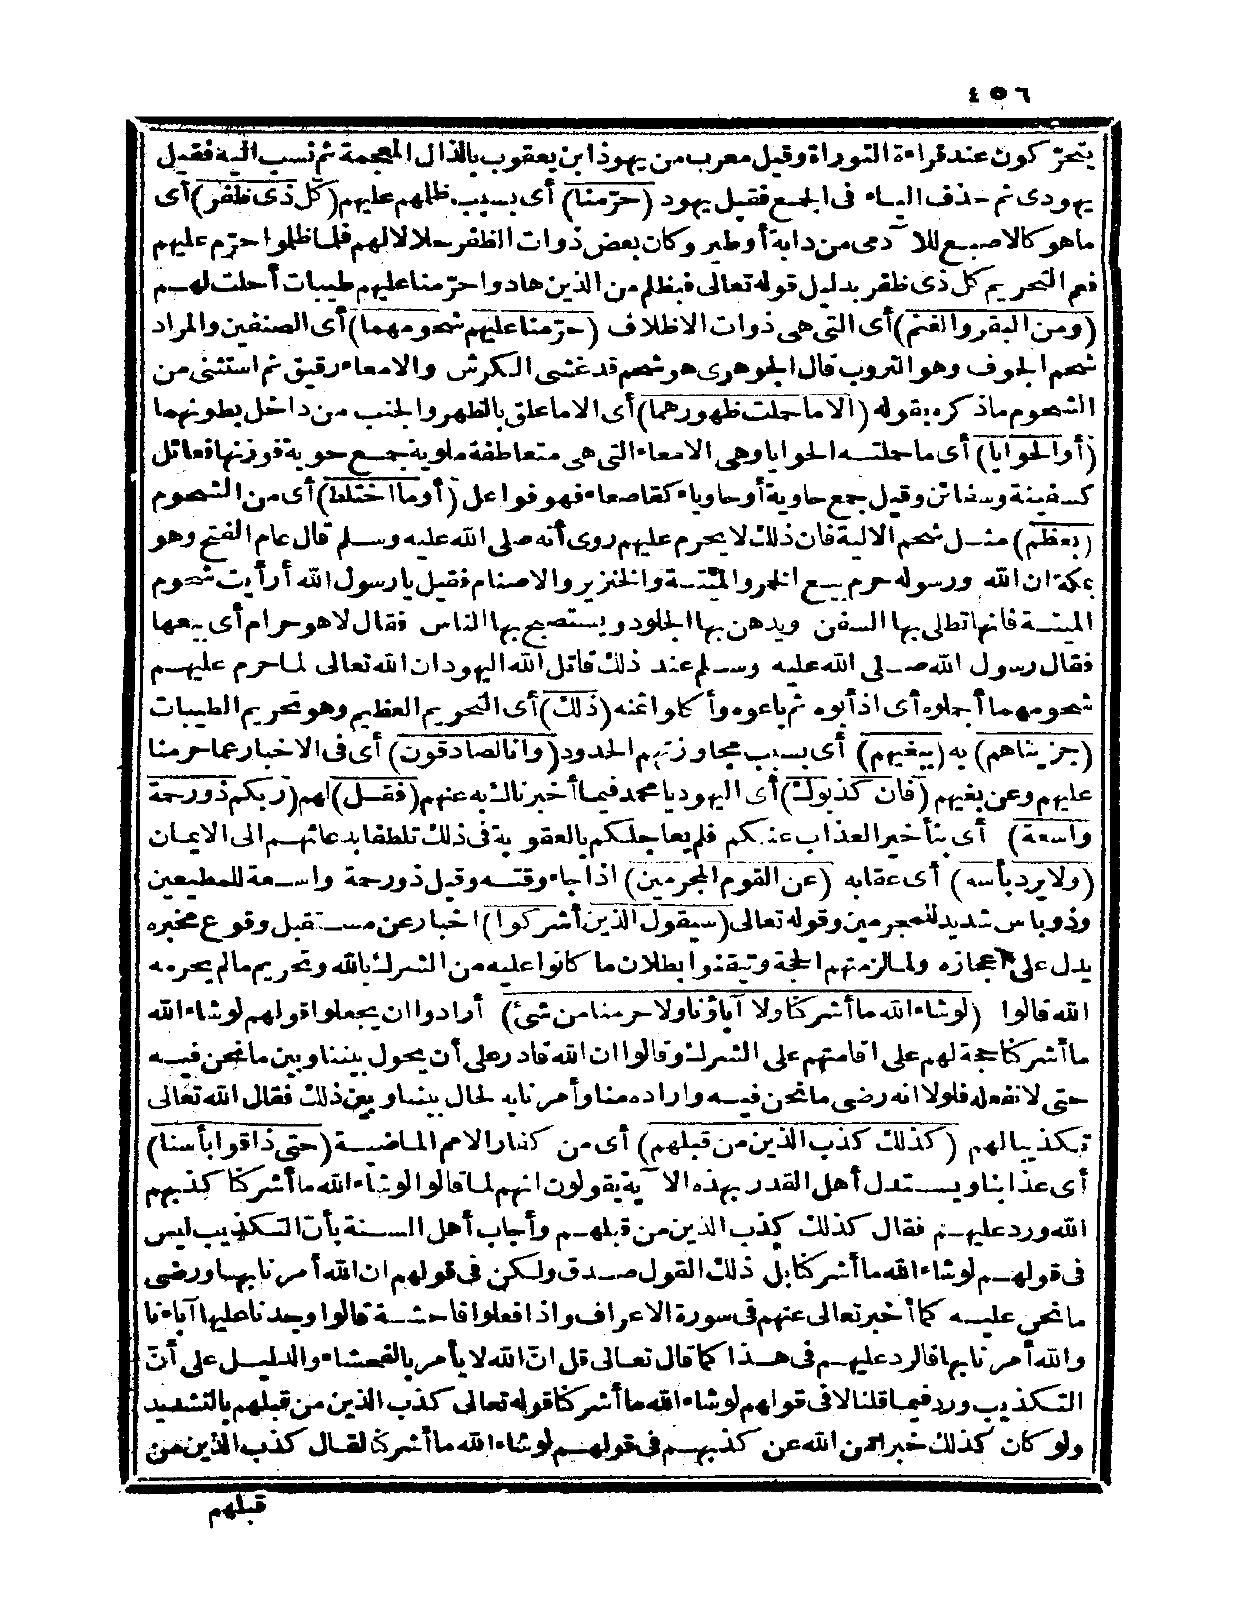 ٤٥٦
يتحرّكون عند قراءة التوراة وقيل معرب من يهوذا بن يعقوب بالذال المعجمة ثم نسب اليه فقيل
يهودى ثم حذف الياء فى الجمع فقيل يهود (حرّمنا) أى بسبب ظلمهم عليهم (كل ذى ظفر) أى
ما هو كالاصبع للآدمى من دابة أو طير وكان بعض ذوات الظفر حلالا لهم فلما ظلموا حرّم عليهم
فعم التحريم كل ذى ظفر بدليل قوله تعالى فبظلم من الذين هادوا حرّمنا عليهم طيبات أحلت لهم
(ومن البقر والغنم) أى التى هى ذوات الاظلاف (حرّمنا عليهم شحومهما) أى الصنفين والمراد
شحم الجوف وهو الثروب قال الجوهرى هو شحم قد غشى الكرش والامعاء رقيق ثم استثنى من
الشحوم ماذكره بقوله (الا ما حملت ظهورهما) أى الا ما علق بالظهر والجنب من داخل بطونهما
(أو الحوايا) أى ما حملته الحوايا وهى الامعاء التى هى متعاطفة ملوية جمع حوية فوزنها فعائل
كسفينة وسفائن وقيل جمع حاوية أو حاوياء كقاصعاء فهو فواعل (أو ما اختلط) أى من الشحوم
(بعظم) مثل شحم الالية فان ذلك لا يحرم عليهم روى أنه صلى الله عليه وسلم قال عام الفتح وهو
بمكة ان الله ورسوله حرم بيع الخمر والميتة والخنزير والاصنام فقيل يا رسول الله أرأيت شحوم
الميتة فانها تطلى بها السفن ويدهن بها الجلود ويستصبح بها الناس فقال لا هو حرام أى بيعها
فقال رسول الله صلى الله عليه وسلم عند ذلك قاتل الله اليهود ان الله تعالى لما حرم عليهم
شحومهما أجملوه أى اذابوه ثم باعوه وأكلوا ثمنه (ذلك) أى التحريم العظيم وهو تحريم الطيبات
(جزيناهم) به (ببغيهم) أى بسبب مجاوزتهم الحدود (وانا لصادقون) أى فى الاخبار عما حرمنا
عليهم وعن بغيهم (فان كذبوك) أى اليهود يا محمد فيما أخبرناك به عنهم (فقل) لهم (ربكم ذو رحمة
واسعة) أى بتأخير العذاب عنكم فلم يعاجلكم بالعقوبة فى ذلك تلطفا بدعائهم الى الايمان
(ولا يرد بأسه) أى عقابه (عن القوم المجرمين) اذا جاء وقته وقيل ذو رحمة واسعة للمطيعين
وذو باس شديد للمجرمين وقوله تعالى (سيقول الذين أشركوا) اخبار عن مستقبل وقوع مخبره
يدل على اعجازه ولما لزمتهم الحجة وتيقنوا بطلان ما كانوا عليه من الشرك بالله وتحريم ما لم يحرمه
الله قالوا (لو شاء الله ما أشركنا ولا آباؤنا ولا حرمنا من شئ) أرادوا ان يجعلوا قولهم لو شاء الله
ما أشركنا حجة لهم على اقامتهم على الشرك وقالوا ان الله قادر على أن يحول بيننا وبين ما نحن فيه
حتى لا نفعله فلولا انه رضى ما نحن فيه واراده منا وأمرنا به لحال بيننا وبين ذلك فقال الله تعالى
تكذيبا لهم (كذلك كذب الذين من قبلهم) أى من كفار الامم الماضية (حتى ذاقوا بأسنا)
أى عذابنا ويستدل أهل القدر بهذه الآية يقولون انهم لما قالوا لو شاء الله ما أشركنا كذبهم
الله ورد عليهم فقال كذلك كذب الذين من قبلهم وأجاب أهل السنة بأنّ التكذيب ليس
فى قولهم لو شاء الله ما أشركنا بل ذلك القول صدق ولكن فى قولهم ان الله أمرنا بها ورضى
ما نحن عليه كما أخبر تعالى عنهم فى سورة الاعراف واذا فعلوا فاحشة قالوا وجدنا عليها آباءنا
والله أمرنا بها فالرد عليهم فى هذا كما قال تعالى قل انّ الله لا يأمر بالفحشاء والدليل على أنّ
التكذيب ورد فيما قلنا لا فى قولهم لو شاء الله ما أشركنا قوله تعالى كذب الذين من قبلهم بالتشديد
ولو كان كذلك خبرا من الله عن كذبهم فى قولهم لو شاء الله ما أشركنا لقال كذب الذين من
قبلهم